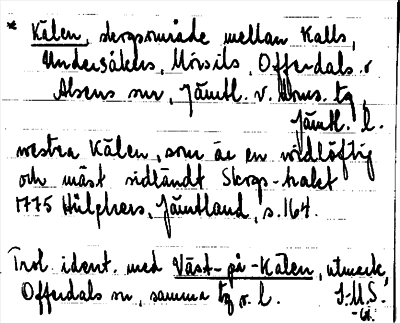 * Kälen, skogsområde mellan Kalls,
Undersåkers, Mörsils, Offerdals o
Alsens snr, Jämtl. v. doms. tg
Jämtl. l.
westra Kälen, som är en widlöftig
och mäst sidländt Skogs-trakt
1775 Hülphers, Jämtland, s. 164.
Trol. ident. med Väst-på-Kälen, utmark,
Offerdals sn, samma tg o. l.